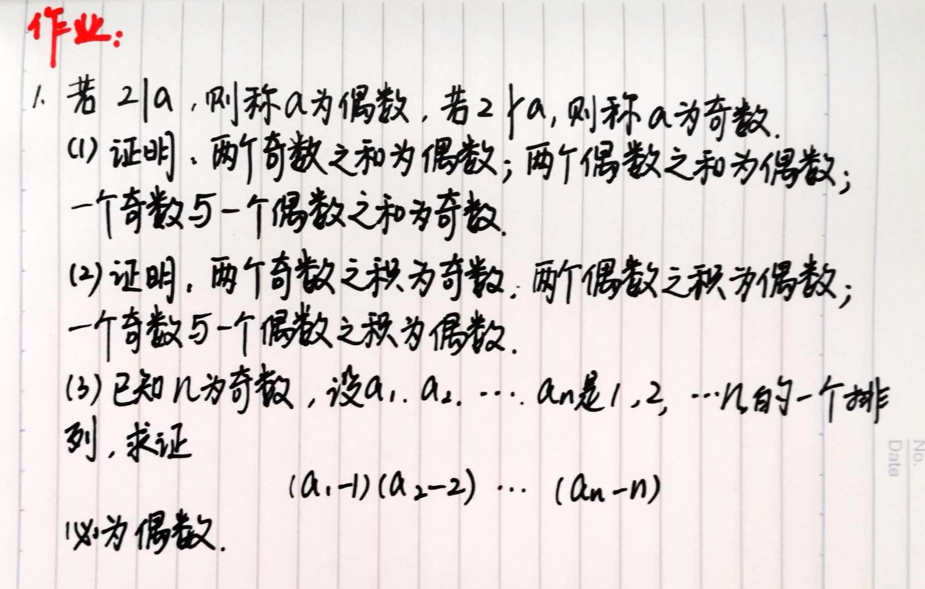 作业:
1. 若 2|a, 则称a为偶数, 若2∤a, 则称a为奇数.
(1) 证明: 两个奇数之和为偶数; 两个偶数之和为偶数;
一个奇数与一个偶数之和为奇数.
(2) 证明: 两个奇数之积为奇数; 两个偶数之积为偶数;
一个奇数与一个偶数之积为偶数.
(3) 已知n为奇数, 设a₁, a₂, … aₙ是1, 2, …n的一个排
列, 求证
(a₁-1)(a₂-2) … (aₙ-n)
必为偶数.
No.
Date